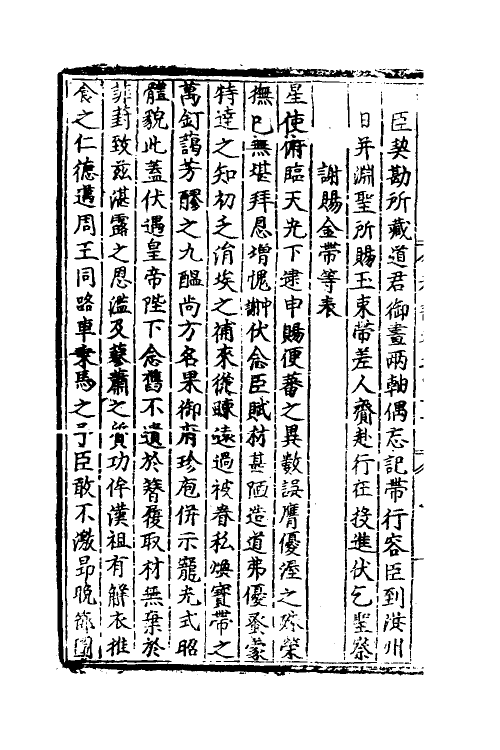 臣契勘所藏道君御畫兩軸偶忘記帶行容臣到汝州
日并淵聖所賜玉束帶差人齎赴行在投進伏乞聖察
謝賜金帶等表
星使俯臨天光下逮申賜便蕃之異數誤膺優渥之殊榮
撫己無堪拜恩增愧謝伏念臣賦材甚陋造道弗優蚤蒙
特達之知初乏涓埃之補來從疎遠過被眷私煥寶帶之
萬釘藹芳醪之九醞尚方名果御府珍庖併示寵光式昭
體貌此蓋伏遇皇帝陛下念舊不遺於簪履取材無棄於
葑致茲湛露之恩濫及蕭之質功侔漢祖有解衣推
食之仁德邁周王同路車乘馬之予臣敢不激昻晚節圖